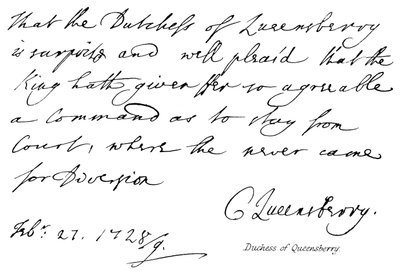 That the Dutchess of Queensberry
is surprised and well pleas'd that the
King hath given Her so agreeable
a Command as to stay from
Court, where she never came
for Diversion
C Queensberry.
Feb: 27. 1728/9.
Duchess of Queensberry.